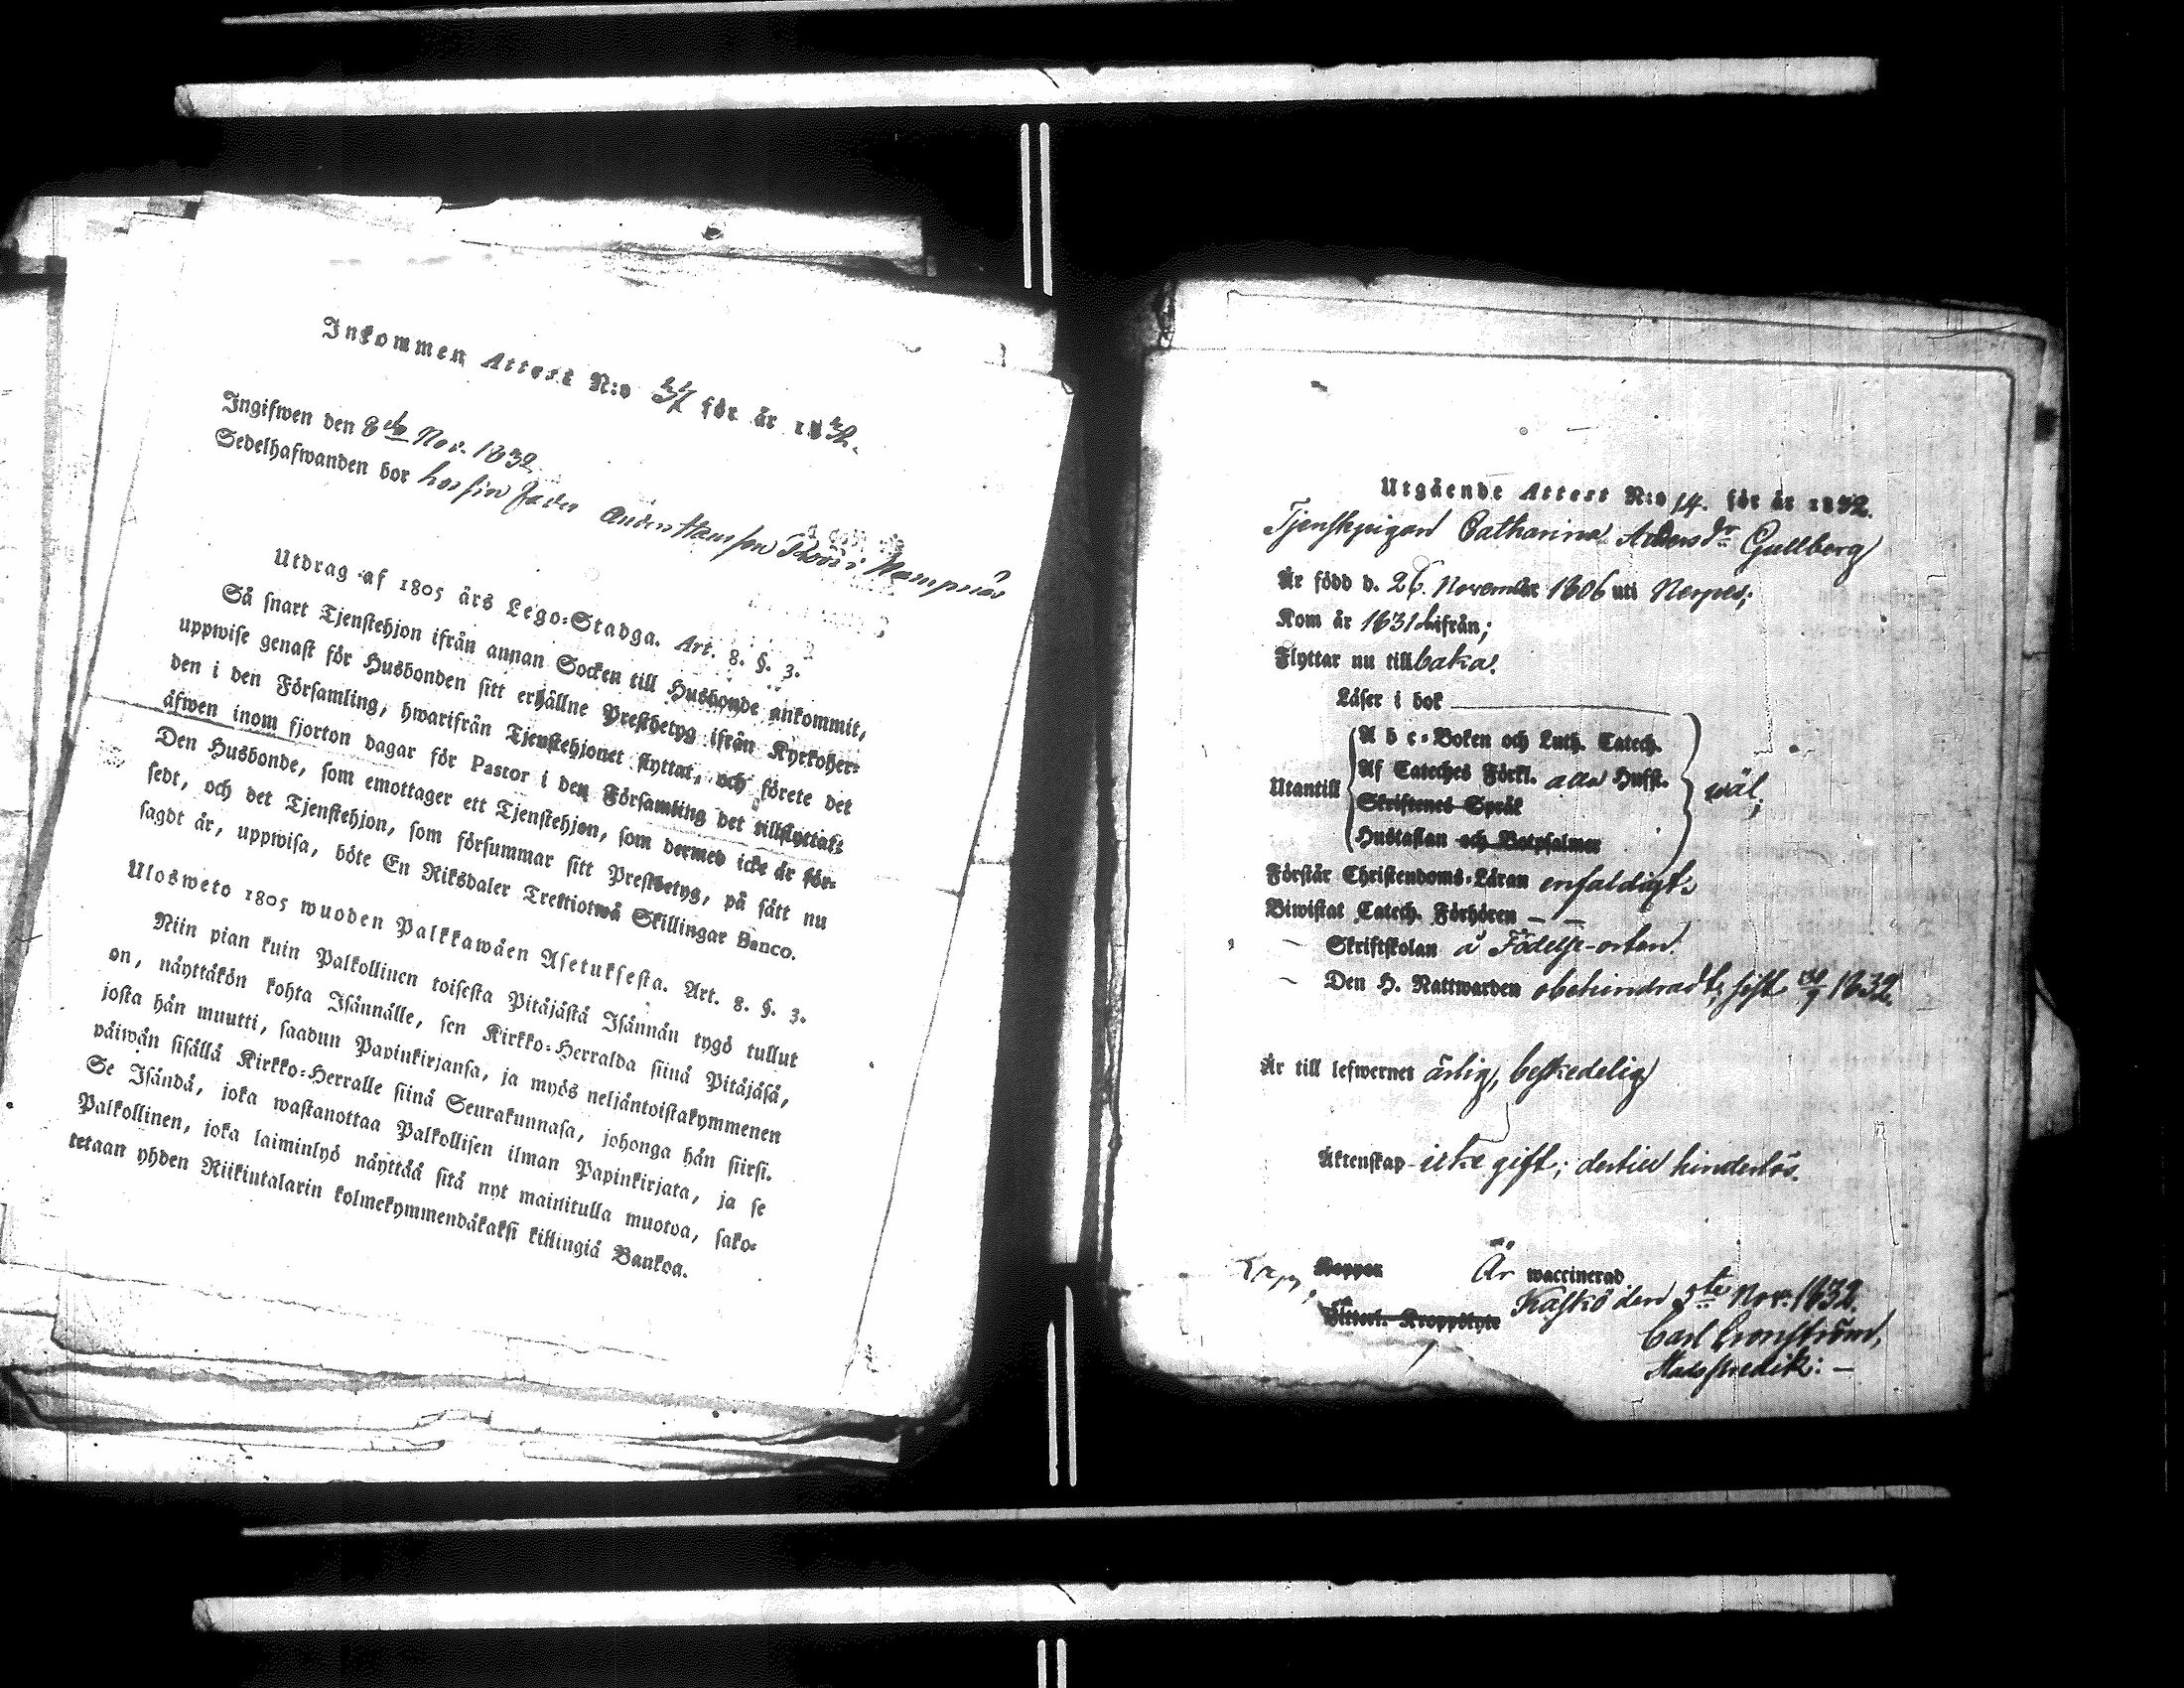 Inkommen Attest N:o 37 för år 1832.
Ingifwen den 8de Nov. 1832
Sedelhafwanden bor hos sin fader Anders Hansson Nämpnäs
Utdrag af 1805 års Lego-Stadga. Art. 8. §. 3.
Så snart Tjenstehjon ifrån annan Socken till Husbonde ankommit,
uppwise genast för Husbonden sitt erhållne Prestbetyg ifrån Kyrkoher-
den i den Församling, hwarifrån Tjenstehjonet flyttat, och förete det
äfwen inom fjorton dagar för Pastor i den Församling det tillflyttat:
Den Husbonde, som emottager ett Tjenstehjon, som dermed icke är för-
sedt, och det Tjenstehjon, som försummar sitt Prestbetyg, på sätt nu
sagdt är, uppwisa, böte En Riksdaler Trettiotwå Skillingar Banco.
Ulosweto 1805 wuoden Palkkawäen Asetuksesta. Art. 8. §. 3.
Niin pian kuin Palkollinen toisesta Pitäjästä Isännän tygö tullut
on, näyttäkön kohta Isännälle, sen Kirkko-Herralda siinä Pitäjäsä,
josta hän muutti, saadun Papinkirjansa, ja myös neljäntoistakymmenen
päiwän sisällä Kirkko-Herralle siinä Seurakunnasa, johonga hän siirsi.
Se Isändä, joka wastanottaa Palkollisen ilman Papinkirjata, ja se
Palkollinen, joka laiminlyö näyttää sitä nyt mainitulla muotoa, sako-
tetaan yhden Riikintalarin kolmekymmendäkaksi killingiä Bankoa.
Utgående Attest N:o 14. för år 1832.
Tjenstepigan Catharina Andersdr Gullberg
Är född d. 26. November 1806 uti Nerpes;
Kom år 1831 hitifrån;
Flyttar nu tillbaka.
Läser i bok
Utantill
A b c-Boken och Luth. Catech.
Af Cateches Förkl. alla Hufst.
Skriftenes Språk
Hustaflan och Botpsalmer
wäl;
Förstår Christendoms-Läran enfaldigt.
Biwistat Catech. Förhören — —
~ Skriftskolan å Födelse-orten.
~ Den H. Nattwarden obehindradt, sist 30/9 1832.
Är till lefwernet ärlig, beskedelig
Äktenskap icke gift; dertill hinderlös.
Koppor Är waccinerad
Ytterl. Kroppslyte Kaskö den 5te Nov. 1832.
Carl Cronström,
Stadspredik: —